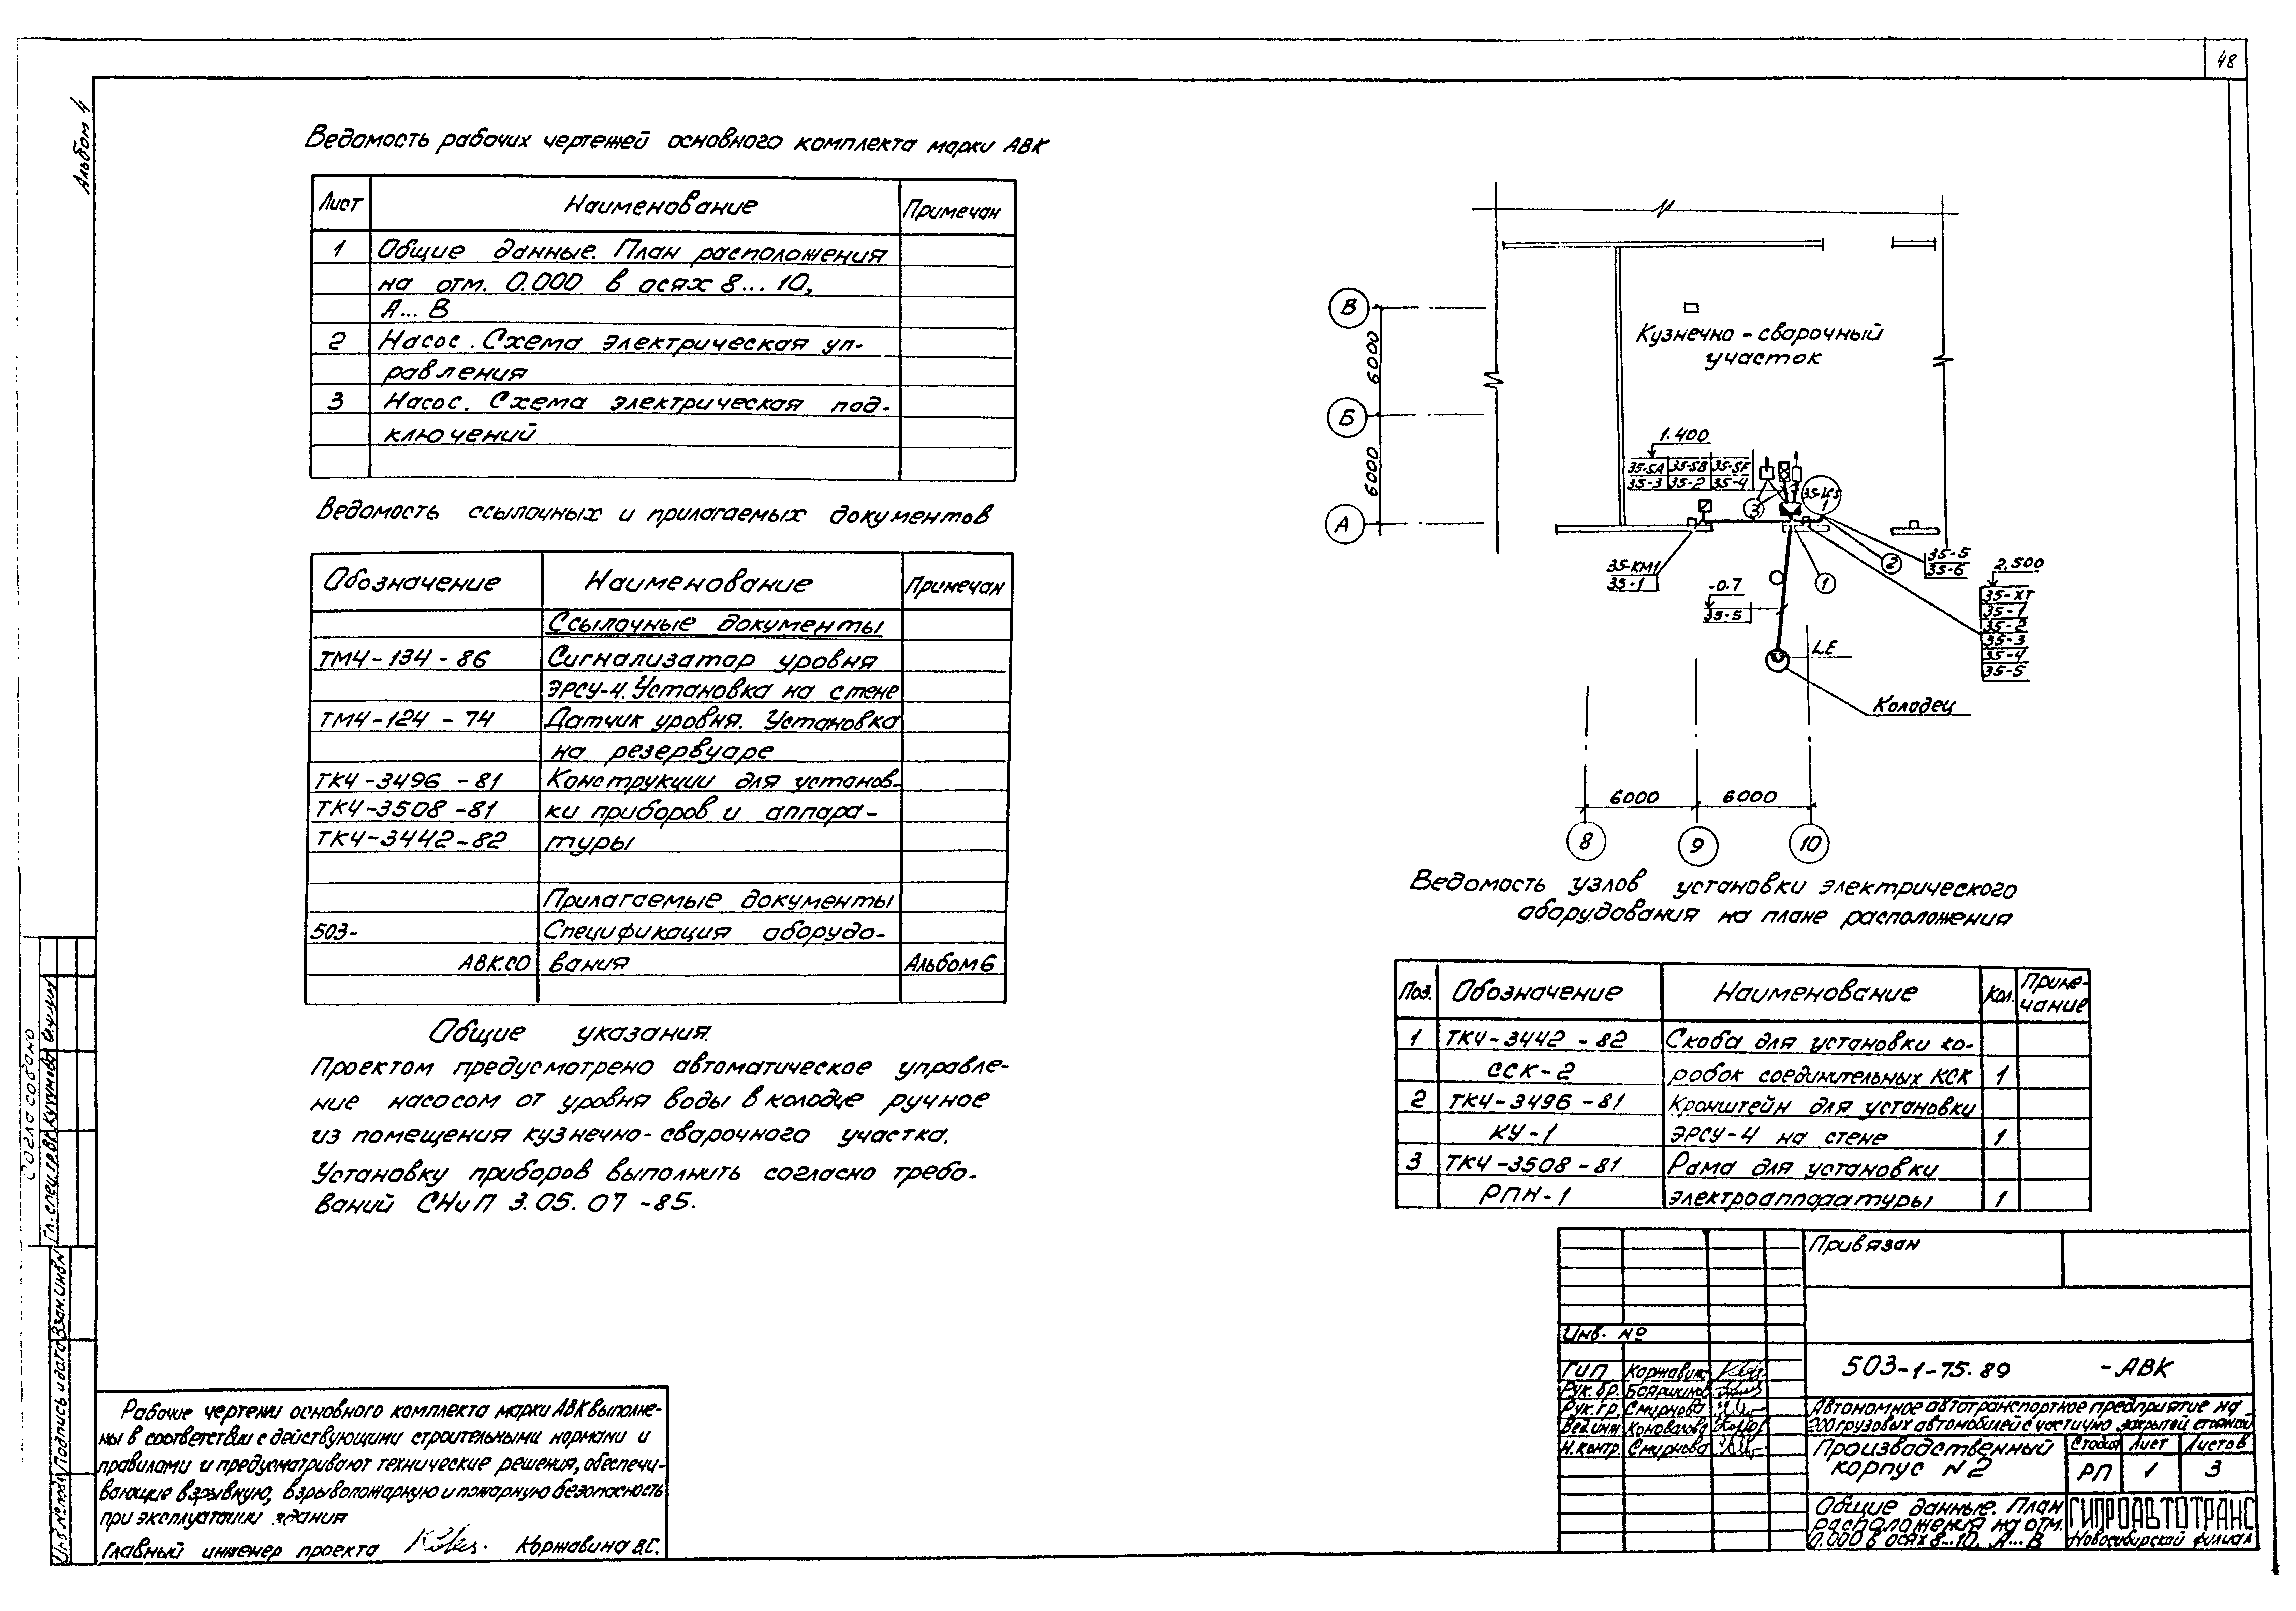 48
Альбом 4
Ведомость рабочих чертежей основного комплекта марки АВК
Лист Наименование Примечан
1 Общие данные. План расположения
на отм. 0.000 в осях 8... 10,
А... В
2 Насос. Схема электрическая уп-
равления
3 Насос. Схема электрическая под-
ключений
Ведомость ссылочных и прилагаемых документов
Обозначение Наименование Примечан
Ссылочные документы
ТМ4-134-86 Сигнализатор уровня
ЭРСУ-4. Установка на стене
ТМ4-124-74 Датчик уровня. Установка
на резервуаре
ТК4-3496-81 Конструкции для установ-
ТК4-3508-81 ки приборов и аппара-
ТК4-3442-82 туры
Прилагаемые документы
503- Спецификация оборудо-
АВК.СО вания Альбом 6
Общие указания.
Проектом предусмотрено автоматическое управле-
ние насосом от уровня воды в колодце ручное
из помещения кузнечно-сварочного участка.
Установку приборов выполнить согласно требо-
ваний СНиП 3.05.07-85.
В
Б
А
6000
6000
Кузнечно-сварочный
участок
1.400
35-SA 35-SB 35-SF
35-3 35-2 35-4
3
1
35-КМ1
35-1
-0.7
35-5
1
2
35-5
35-6
2,500
35-XT
35-1
35-2
35-3
35-4
35-5
LE
Колодец
6000 6000
8 9 10
Ведомость узлов установки электрического
оборудования на плане расположения
Поз. Обозначение Наименование Кол. Приме-
чание
1 ТК4-3442-82 Скоба для установки ко-
ССК-2 робок соединительных КСК 1
2 ТК4-3496-81 Кронштейн для установки
КУ-1 ЭРСУ-4 на стене 1
3 ТК4-3508-81 Рама для установки
РПН-1 электроаппаратуры 1
Привязан
Инв. №
503-1-75.89 -АВК
ГИП Коржавина
Рук. бр. Бояршинов
Рук. гр. Смирнова
Вед.инж Коновалова
Н.контр. Смирнова
Автономное автотранспортное предприятие на
200 грузовых автомобилей с частично закрытой стоянкой
Производственный
корпус №2
Стадия Лист Листов
РП 1 3
Общие данные. План
расположения на отм.
0.000 в осях 8...10, А...В
ГИПРОАВТОТРАНС
Новосибирский филиал
Рабочие чертежи основного комплекта марки АВК выполне-
ны в соответствии с действующими строительными нормами и
правилами и предусматривают технические решения, обеспечи-
вающие взрывную, взрывопожарную и пожарную безопасность
при эксплуатации здания
Главный инженер проекта Коржавина В.С.
Согласовано
Гл. спец.
Инв № подл Подпись и дата Взам. Инв №